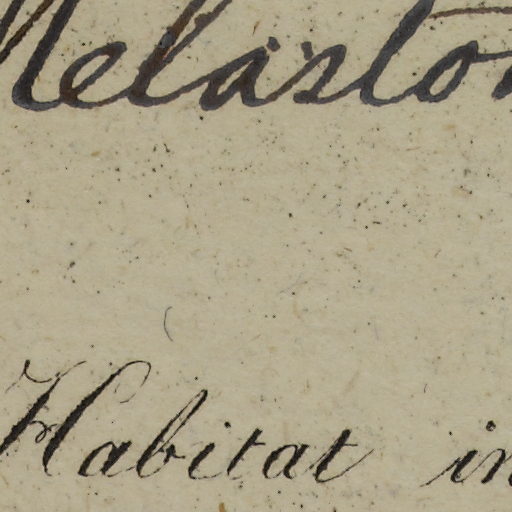 Melasto
Habitat in